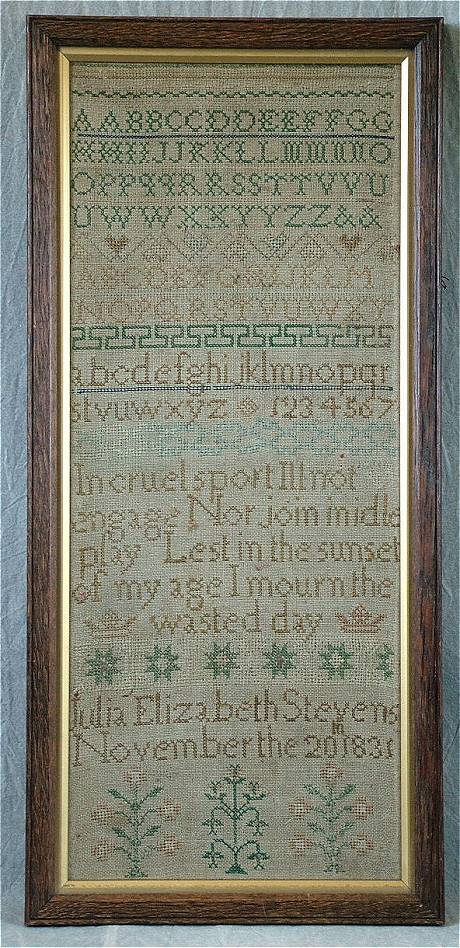 AABBCCDDEEFFGG
HHIIJJKKLLMMNNO
OPPqqRRSSTTVVU
UWWXXYYZZ&&
ABCDEFGHIJKLM
NOPQRSTUVWXY
abcdefghijklmnopqr
stvuwxyz 1234567
In cruel sport Ill not
engage Nor join in idle
play Lest in the sunset
of my age I mourn the
wasted day
Julia Elizabeth Stevens
November the 20th 1831